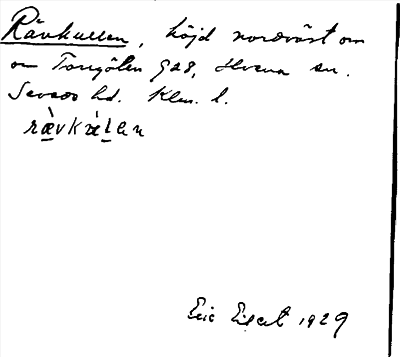 Rävkullen, höjd nordväst om
om Torrgölen 928, Hvena sn.
Sevede hd. Klm. l.
rævkælen
Eric Elgert 1929